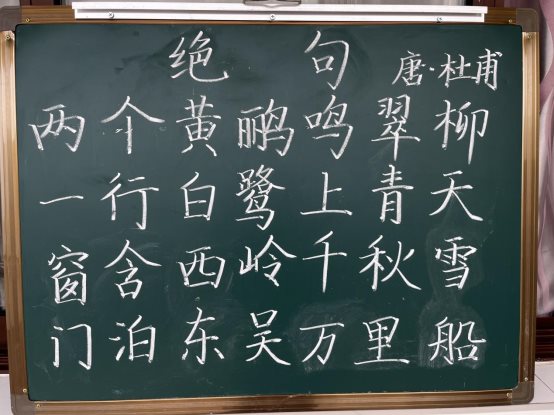 绝句 唐·杜甫
两个黄鹂鸣翠柳
一行白鹭上青天
窗含西岭千秋雪
门泊东吴万里船